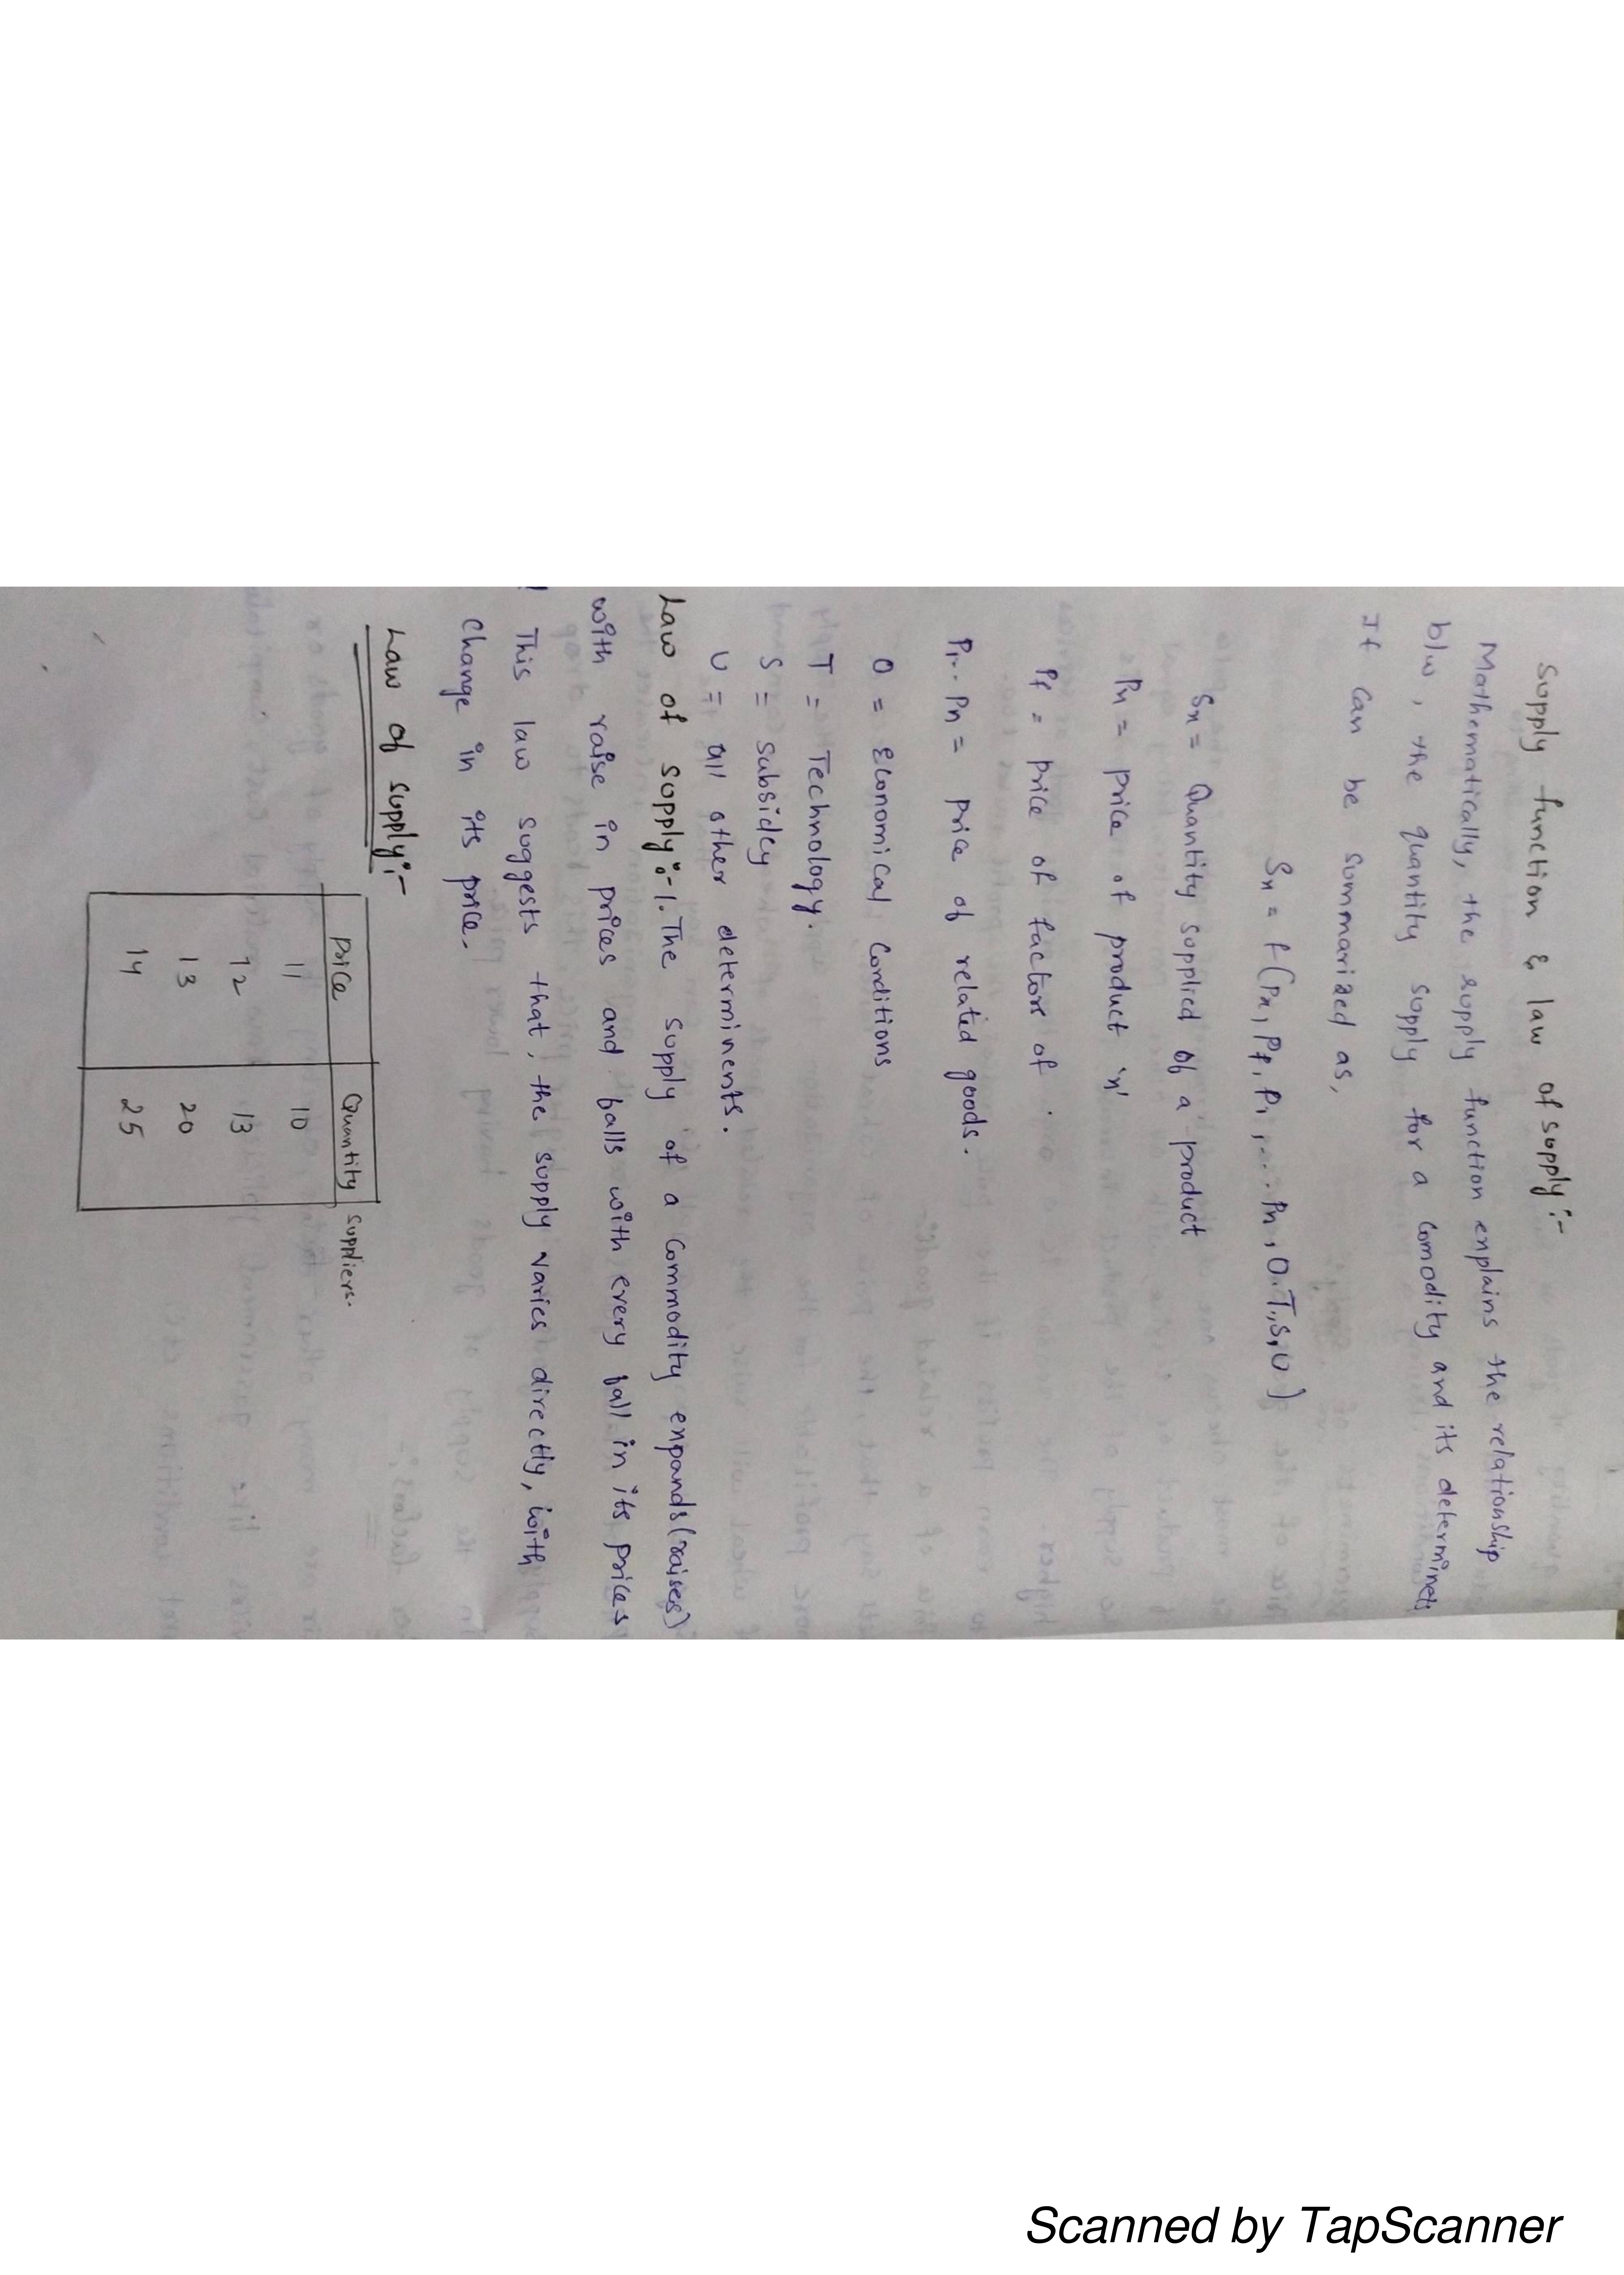 Supply function & law of supply:-
Mathematically, the supply function explains the relationship
b/w, the quantity supply for a comodity and its determinets
It can be summarized as,
Sx = f(Px, Pf, P1, ... Pn, O.T,S,U)
Sx = Quantity supplied of a product
Px = price of product 'x'
Pf = price of factor of .
P1.. Pn = price of related goods.
O = Economical Conditions
T = Technology.
S = subsidcy
U = all other determinents.
Law of supply:-1. The supply of a commodity expands(raises)
with raise in prices and falls with every fall in its prices
This law suggests that, the supply varies directly, with
change in its price.
Law of supply:-
Price Quantity suppliers.
11 10
12 13
13 20
14 25
Scanned by TapScanner